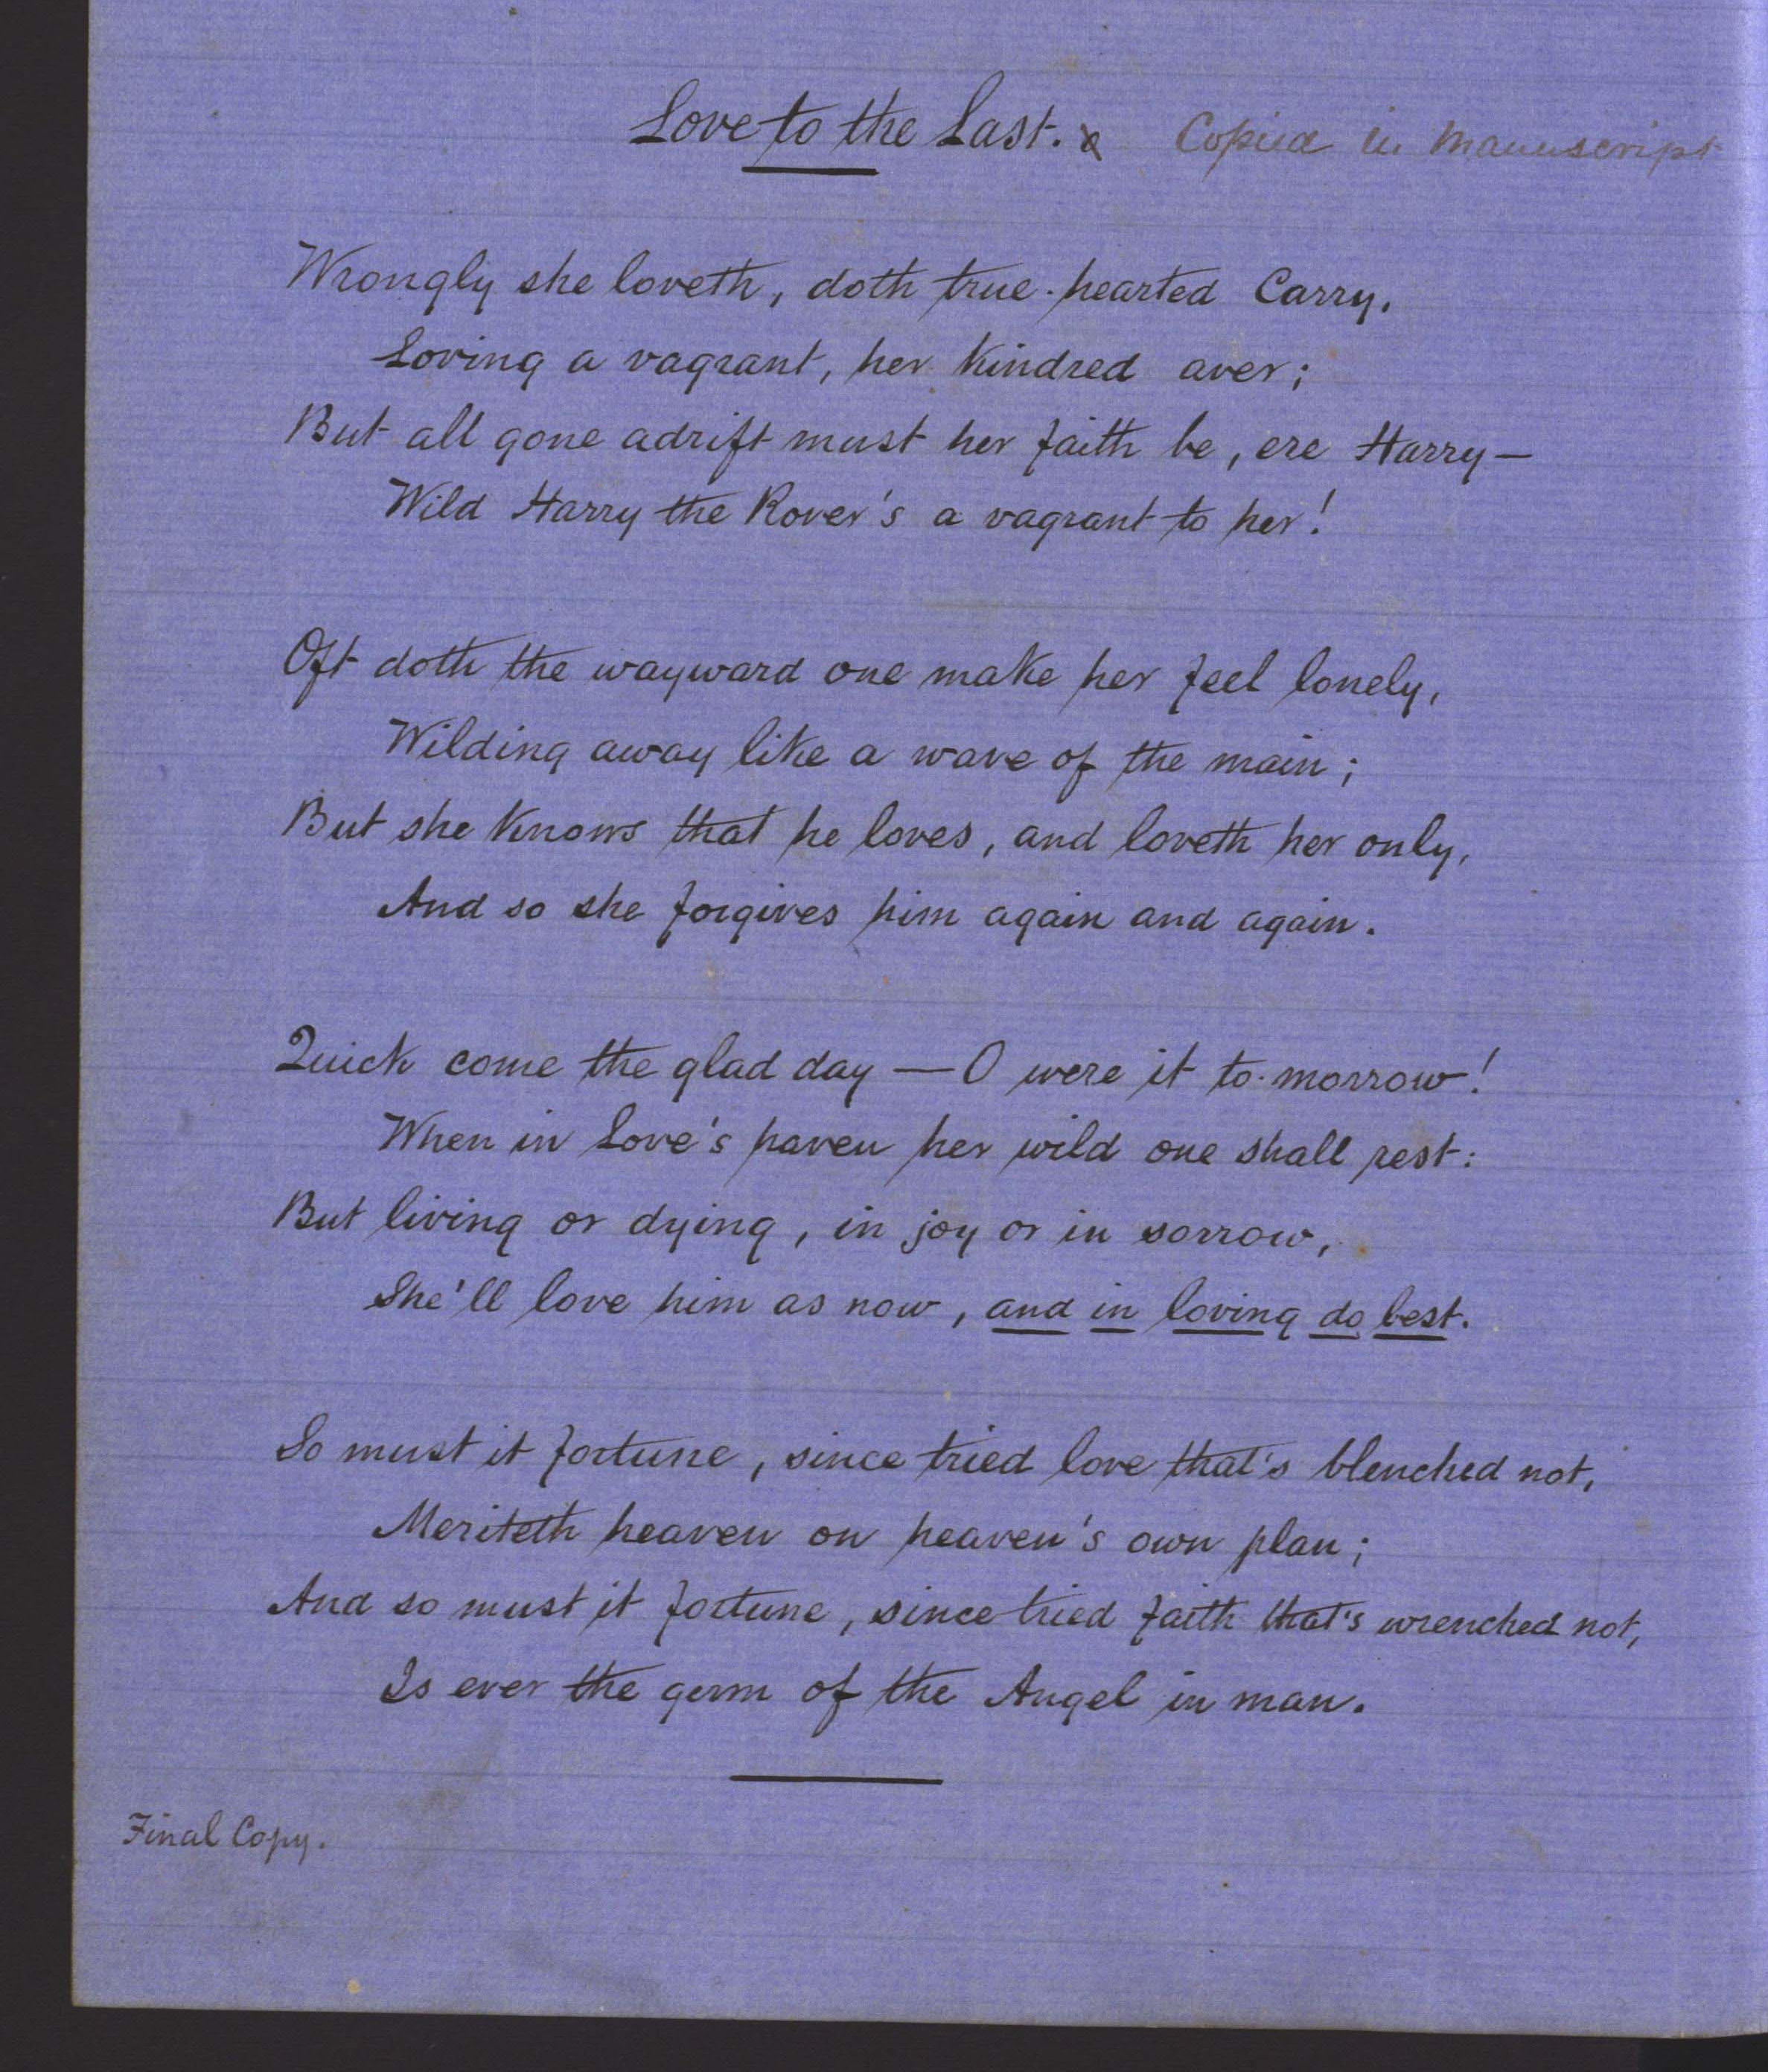 Love to the Last. x Copied in Manuscript
Wrongly she loveth, doth true-hearted Carry,
Loving a vagrant, her kindred aver;
But all gone adrift must her faith be, ere Harry—
Wild Harry the Rover's a vagrant to her!
Oft doth the wayward one make her feel lonely,
Wilding away like a wave of the main;
But she knows that he loves, and loveth her only,
And so she forgives him again and again.
Quick come the glad day — O were it to-morrow!
When in Love's haven her wild one shall rest:
But living or dying, in joy or in sorrow,
She'll love him as now, and in loving do best.
So must it fortune, since tried love that's blenched not,
Meriteth heaven on heaven's own plan;
And so must it fortune, since tried faith that's wrenched not,
Is ever the germ of the Angel in man.
Final Copy.